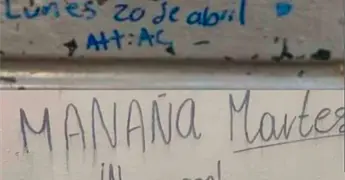 Lunes 20 de abril
Att: AC
MAÑANA Martes